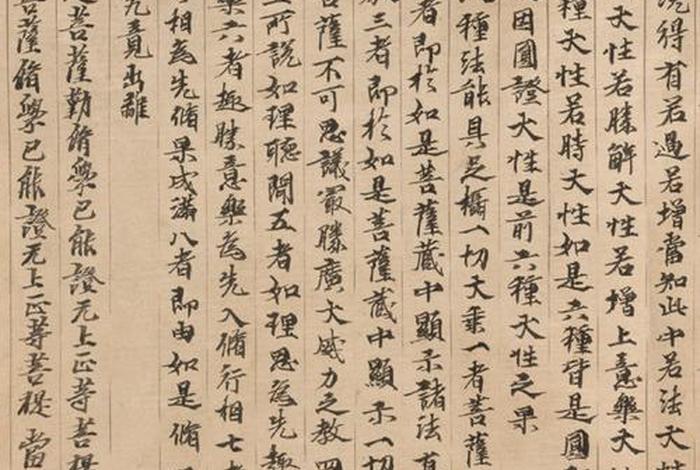 得有若過若增當知此中若法大
大性若勝解大性若增上意樂大
種大性若時大性如是六種皆是圓
因圓證大性是前六種大性之果
種法能具足攝一切大乘一者菩薩
者即於如是菩薩藏中顯示諸法
三者即於如是菩薩藏中顯示一切
菩薩不可思議最勝廣大威力之教四
所說如理聽聞五者如理思為先趣
樂六者趣勝意樂為先入脩行相七者
相為先脩果成滿八者即由如是脩
竟出離
菩薩勤脩學已能證无上正等菩提
菩薩脩學已能證无上正等菩提當